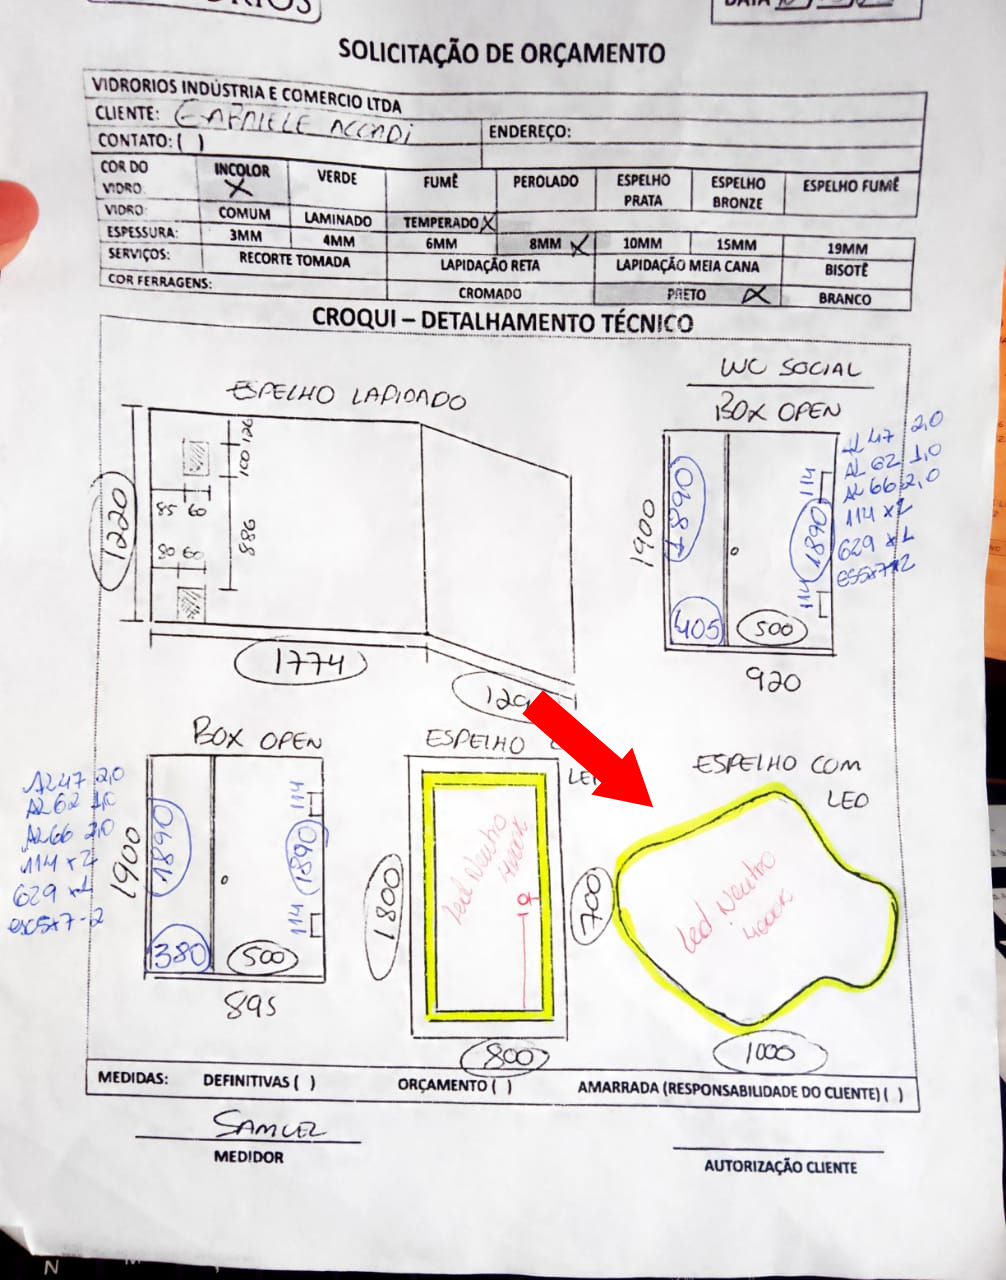 SOLICITAÇÃO DE ORÇAMENTO
VIDRORIOS INDÚSTRIA E COMERCIO LTDA
CLIENTE: GABRIELE ACCADI
ENDEREÇO:
CONTATO: ( )
COR DO VIDRO: INCOLOR X VERDE FUMÊ PEROLADO ESPELHO PRATA ESPELHO BRONZE ESPELHO FUMÊ
VIDRO: COMUM LAMINADO TEMPERADO X
ESPESSURA: 3MM 4MM 6MM 8MM X 10MM 15MM 19MM
SERVIÇOS: RECORTE TOMADA LAPIDAÇÃO RETA LAPIDAÇÃO MEIA CANA BISOTÊ
COR FERRAGENS: CROMADO PRETO X BRANCO
CROQUI – DETALHAMENTO TÉCNICO
ESPELHO LAPIDADO
1220
126
100
85 60
886
80 60
1774
WC SOCIAL
BOX OPEN
1900
1890
114
1890
114
405
500
920
AL 47 2,0
AL 62 1,0
AL 66 2,0
114 x2
629 x1
BOX OPEN
AL47 2,0
AL62 1,0
AL66 2,0
114 x2
629 x1
1900
1890
114
1890
114
380
500
895
ESPELHO
1800
Led Neutro
4000K
800
ESPELHO COM
LED
700
Led Neutro
4000K
1000
MEDIDAS: DEFINITIVAS ( ) ORÇAMENTO ( ) AMARRADA (RESPONSABILIDADE DO CLIENTE) ( )
SAMUEL
MEDIDOR
AUTORIZAÇÃO CLIENTE